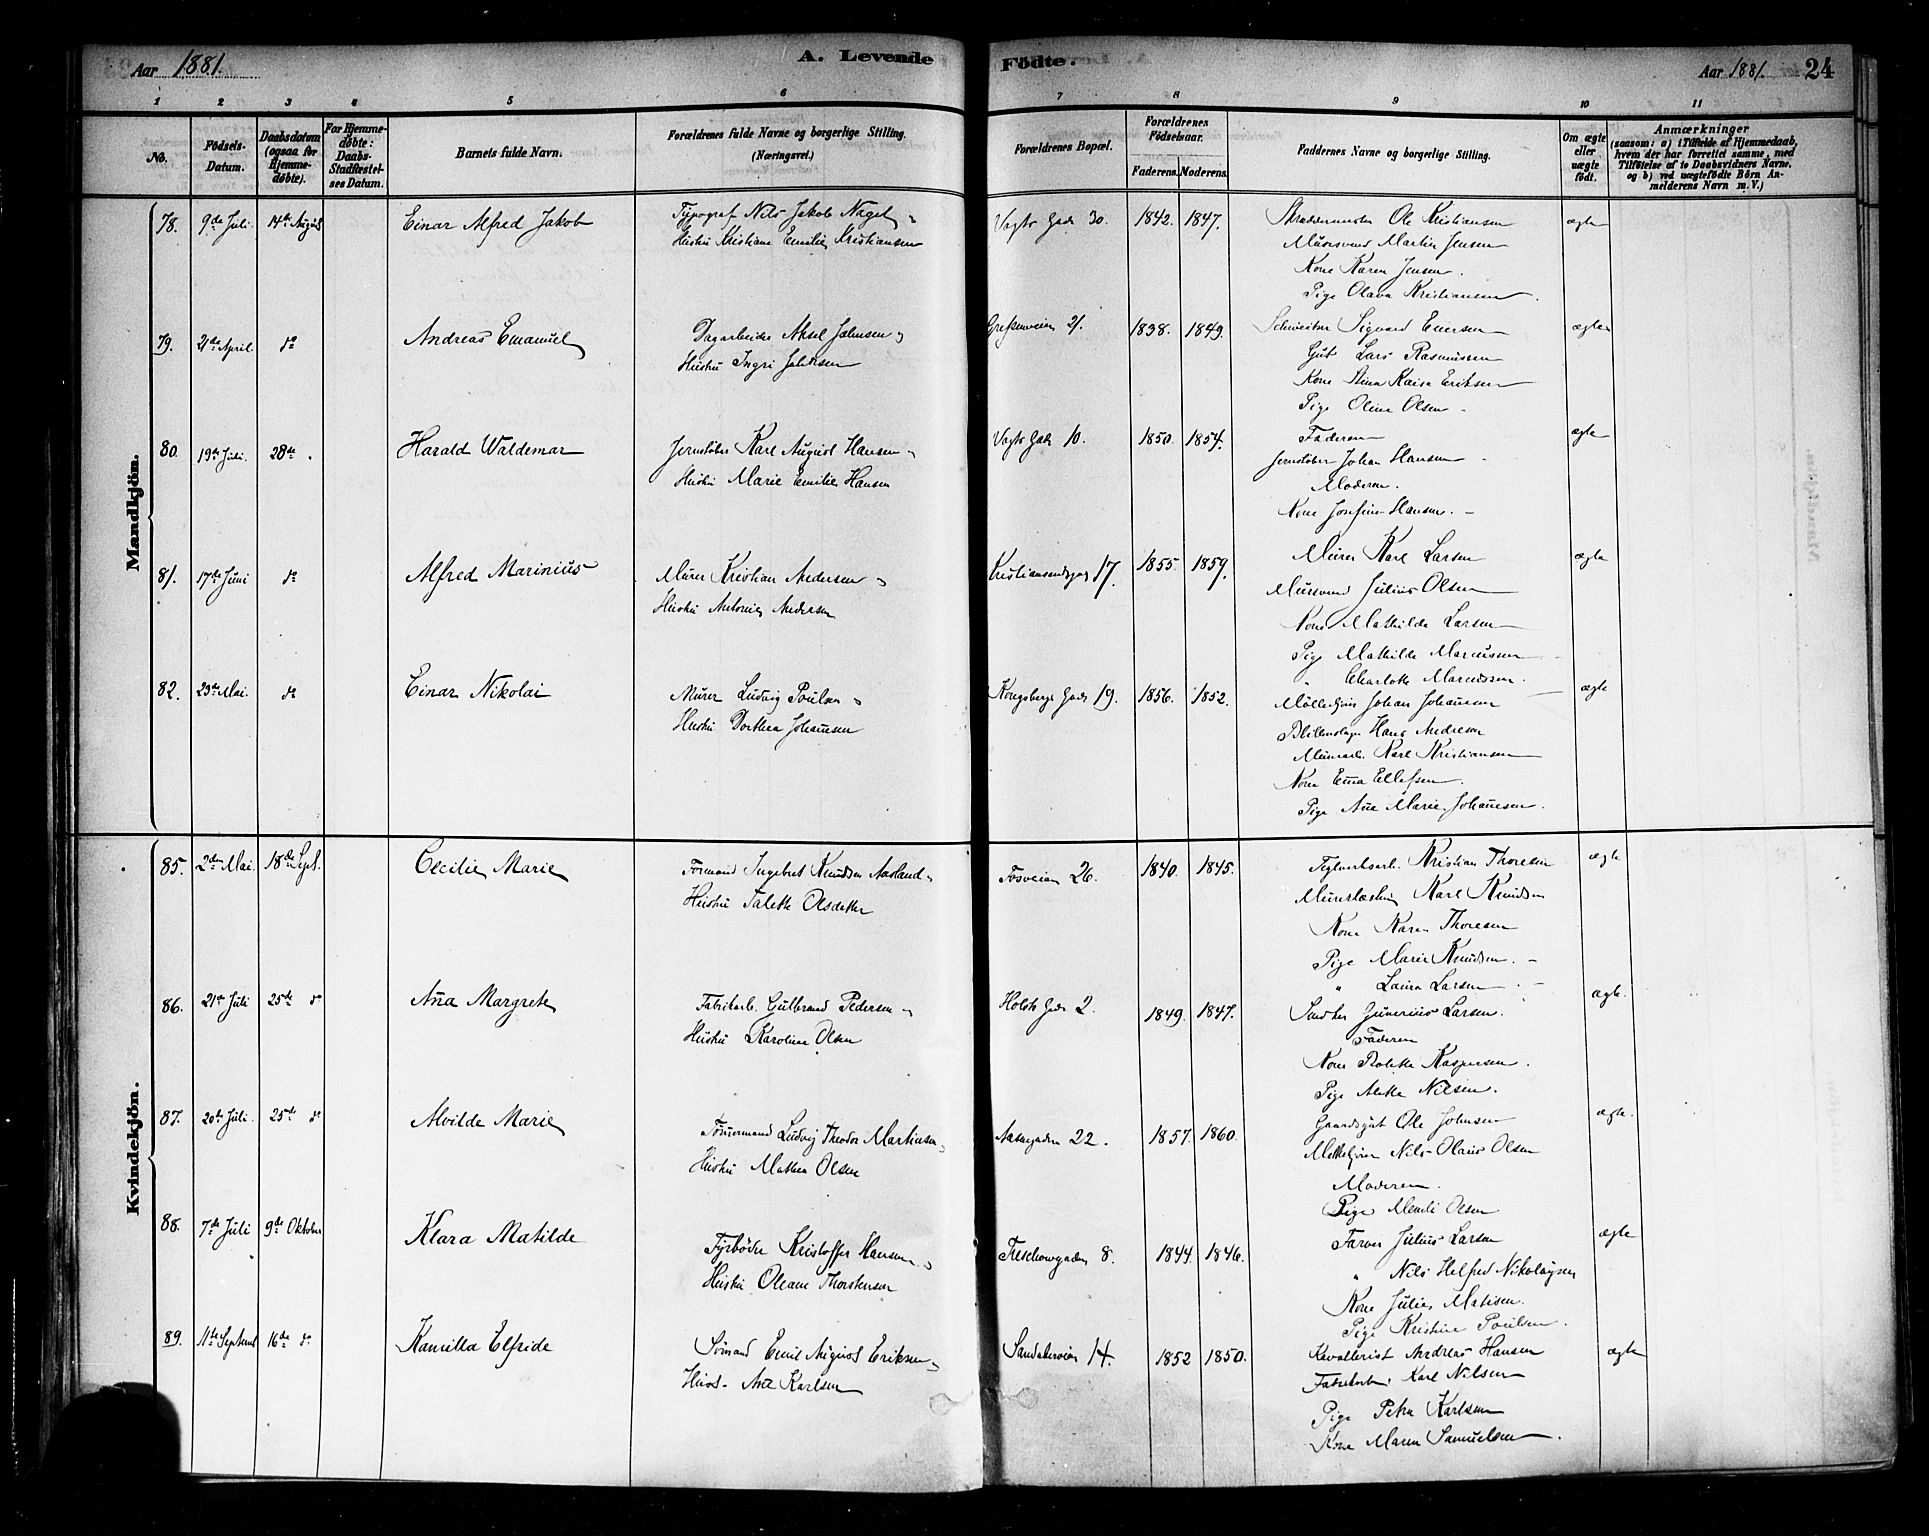 Aar 1881.
A. Levende
Födte.
Aar 1881.
24
1 2 3 4 5 6 7 8 9 10 11
No.
Födsels-
Datum.
Daabsdatum
(ogsaa for
Hjemme-
döbte).
For Hjemme-
döbte:
Daabs-
Stadfæstel-
ses Datum.
Barnets fulde Navn.
Forældrenes fulde Navne og borgerlige Stilling.
(Næringsvei.)
Forældrenes Bopæl.
Forældrenes
Födselsaar.
Faderens. Moderens.
Faddernes Navne og borgerlige Stilling.
Om ægte
eller
uægte
födt.
Anmærkninger
(saasom: a) i Tilfælde af Hjemmedaab,
hvem der har forrettet samme, med
Tilföielse af to Daabsvidners Navne,
og b) ved uægtefödte Börn An-
melderens Navn m. V.)
Mandkjön.
78. 9de Juli. 14de August Einar Alfred Jakob
Typograf Nils Jakob Nagel
Hustru Kristiane Emilie Kristiansen
Vogts Gade 30. 1842. 1847.
Skræddermester Ole Kristiansen ægte
Murersvend Martin Jensen
Kone Karen Jensen.
Pige Olava Kristiansen.
79. 21de April. do Andreas Emanuel
Dagarbeider Aksel Johnsen
Hustru Ingri Johnsen
21. 1838. 1849.
Sigvard Eversen ægte
Gut Lars Rasmussen
Kone Stina Kaisa Eriksen
Pige Oline Olsen
80. 19de Juli. 28de Harald Waldemar
Jernstøber Karl August Hansen
Hustru Marie Emilie Hansen
Vogts Gade 10. 1850. 1854.
Faderen ægte
Jernstøber Johan Hansen
Moderen.
Kone Josefine Hansen.
81. 17de Juni do Alfred Marinius
Murer Kristian Andersen
Hustru Antonie Andersen
Kristiansandsgad 17. 1855. 1859.
Murer Karl Larsen ægte
Mursvend Julius Olsen
Kone Mathilde Larsen
Pige Mathilde Marcussen
" Charlotte Marcussen.
82. 23de Mai. do Einar Nikolai
Murer Ludvig Poulsen
Hustru Dorthea Johansen
Kongsbergs Gade 19. 1856. 1852.
Johan Johansen ægte
Hans Andresen
Murerarb. Karl Kristiansen
Kone Emma Ellefsen.
Pige Ane Marie Johansen.
Kvindekjön.
85. 2den Mai. 18de Sept. Cecilie Marie
Formand Ingebret Knudsen Aasland
Hustru Talette Olsdatter
Fosveien 26. 1840. 1845.
Teglverksarb. Kristian Thoresen ægte
Murerlærling Karl Knudsen
Kone Karen Thoresen
Pige Marie Knudsen.
" Laura Larsen
86. 21de Juli 25de do Anna Margrete
Fabrikarb. Gulbrand Pedersen
Hustru Karoline Olsen
Holsts Gade 2. 1849. 1847.
Larsen. ægte.
Faderen
Kone Bolette Kaspersen.
Pige Alette Nilsen.
87. 20de Juli. 25de do Alvilde Marie
Tømmermand Ludvig Theodor Martinsen
Hustru Mathea Olsen
Aasengaden 22. 1857. 1860.
Gaardsgut Ole Johnsen ægte.
Nils Olaus Olsen
Moderen.
Pige Olsen
88. 7de Juli 9de Oktober Klara Matilde
Fyrbøder Kristoffer Hansen
Hustru Oleane Thorstensen
Treschowgaden 8. 1844. 1846.
Farver Julius Larsen ægte
" Nils Helfred Nikolaysen
Kone Julie Matisen.
Pige Kristine Poulsen.
89. 11te Septemb 16de do Kamilla Elfride
Sømand Emil August Eriksen
Hust. Ane Karlsen
Sandakerveien 14. 1852 1850.
Kavallerist Andreas Hansen ægte
Fabrikarb. Karl Nilsen
Pige Petra Karlsen
Kone Maren Samuelsen.